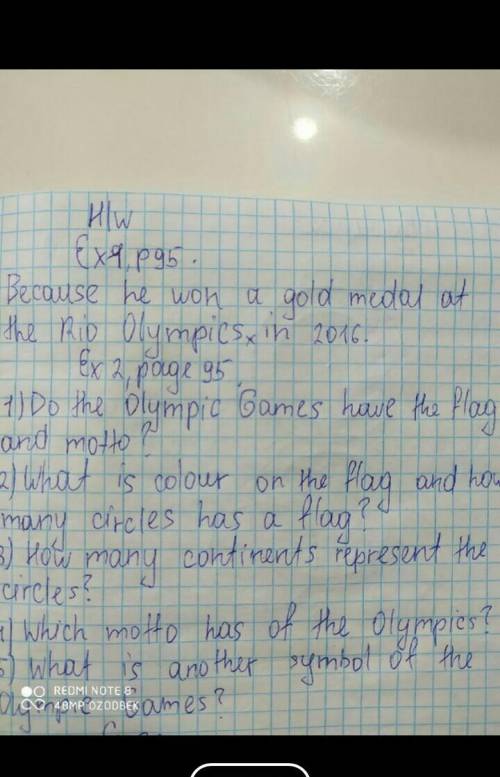 H/w
Ex1, p95.
Because he won a gold medal at
the Rio Olympics in 2016.
Ex 2, page 95
1) Do the Olympic Games have the flag
and motto?
2) What is colour on the flag and how
many circles has a flag?
3) How many continents represent the
circles?
4) Which motto has of the Olympics?
5) What is another symbol of the
Olympic Games?
REDMI NOTE 8
48MP OZODBEK